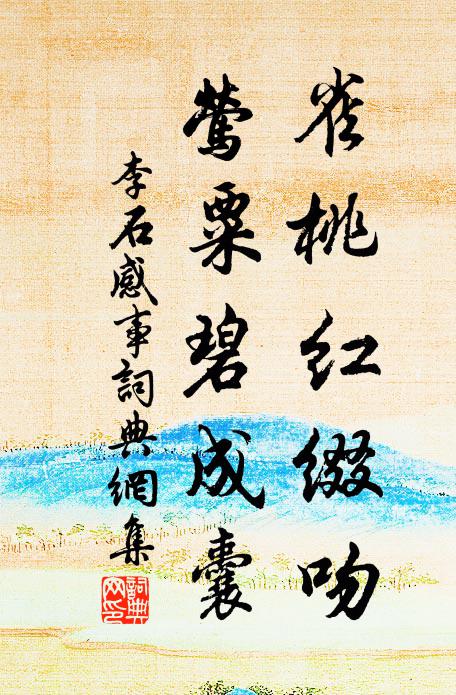 雀桃红缀吻
莺粟碧成囊
李石感事詞典網集
詞典